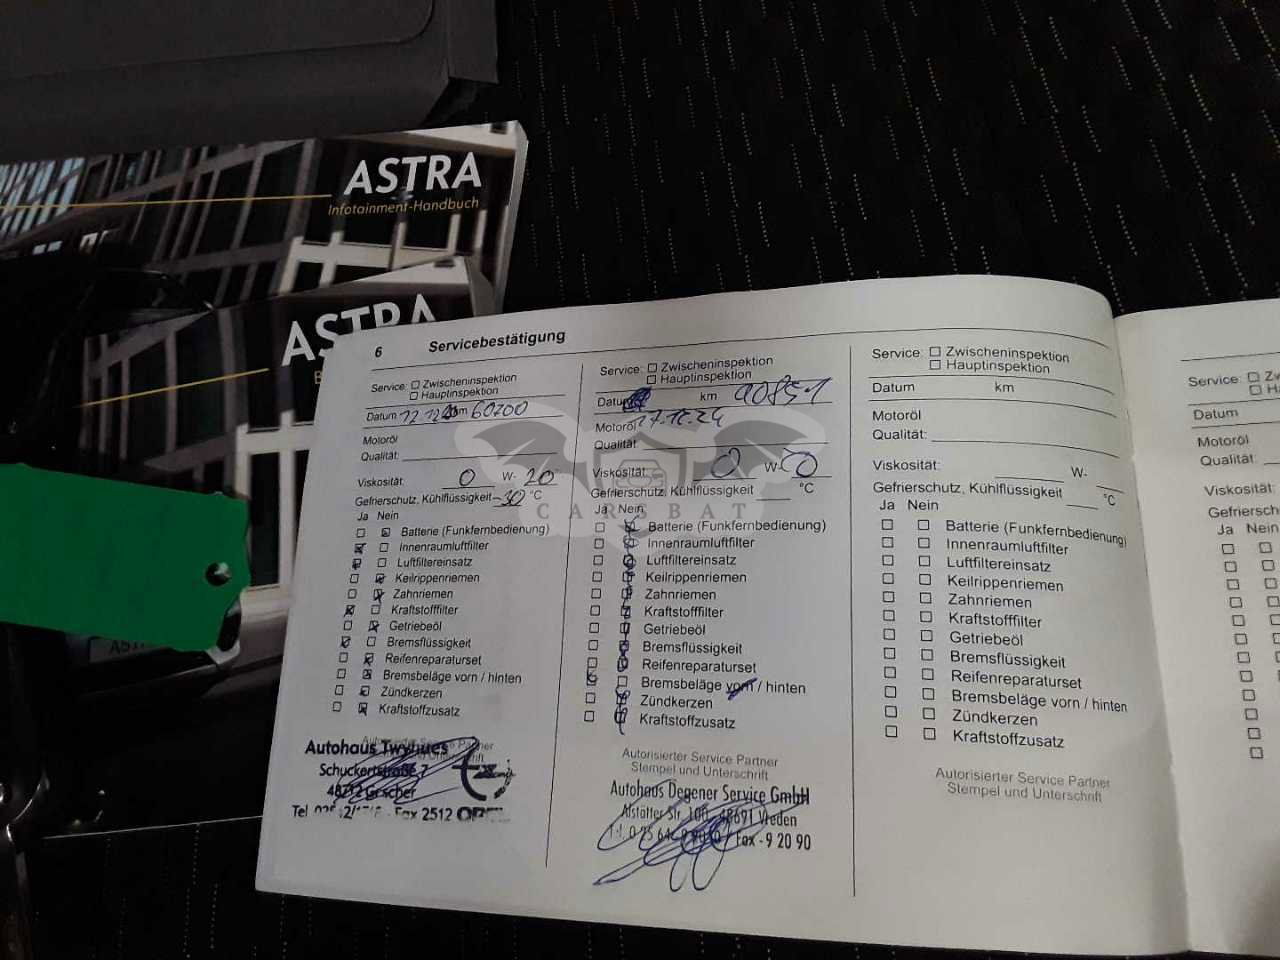 ASTRA
Infotainment-Handbuch
ASTRA
6 Servicebestätigung
Service: Zwischeninspektion
Hauptinspektion
Datum 12 12 km 60200
Motoröl
Qualität:
Viskosität: 0 W- 20
Gefrierschutz, Kühlflüssigkeit -30 °C
Ja Nein
Batterie (Funkfernbedienung)
Innenraumluftfilter
Luftfiltereinsatz
Keilrippenriemen
Zahnriemen
Kraftstofffilter
Getriebeöl
Bremsflüssigkeit
Reifenreparaturset
Bremsbeläge vorn / hinten
Zündkerzen
Kraftstoffzusatz
Autohaus
Schuckertstraße 7
Fax 2512 OPEL
Service: Zwischeninspektion
Hauptinspektion
Datum km 90851
Motoröl 17.12.24
Qualität:
Viskosität: 0 W- 20
Gefrierschutz, Kühlflüssigkeit °C
Ja Nein
Batterie (Funkfernbedienung)
Innenraumluftfilter
Luftfiltereinsatz
Keilrippenriemen
Zahnriemen
Kraftstofffilter
Getriebeöl
Bremsflüssigkeit
Reifenreparaturset
Bremsbeläge vorn / hinten
Zündkerzen
Kraftstoffzusatz
Autorisierter Service Partner
Stempel und Unterschrift
Autohaus Degener Service GmbH
Alstätter Str. 100, 48691 Vreden
Fax - 9 20 90
Service: Zwischeninspektion
Hauptinspektion
Datum km
Motoröl
Qualität:
Viskosität: W-
Gefrierschutz, Kühlflüssigkeit °C
Ja Nein
Batterie (Funkfernbedienung)
Innenraumluftfilter
Luftfiltereinsatz
Keilrippenriemen
Zahnriemen
Kraftstofffilter
Getriebeöl
Bremsflüssigkeit
Reifenreparaturset
Bremsbeläge vorn / hinten
Zündkerzen
Kraftstoffzusatz
Autorisierter Service Partner
Stempel und Unterschrift
Service:
Datum
Motoröl
Qualität:
Viskosität:
Ja Nein
CARSBAT